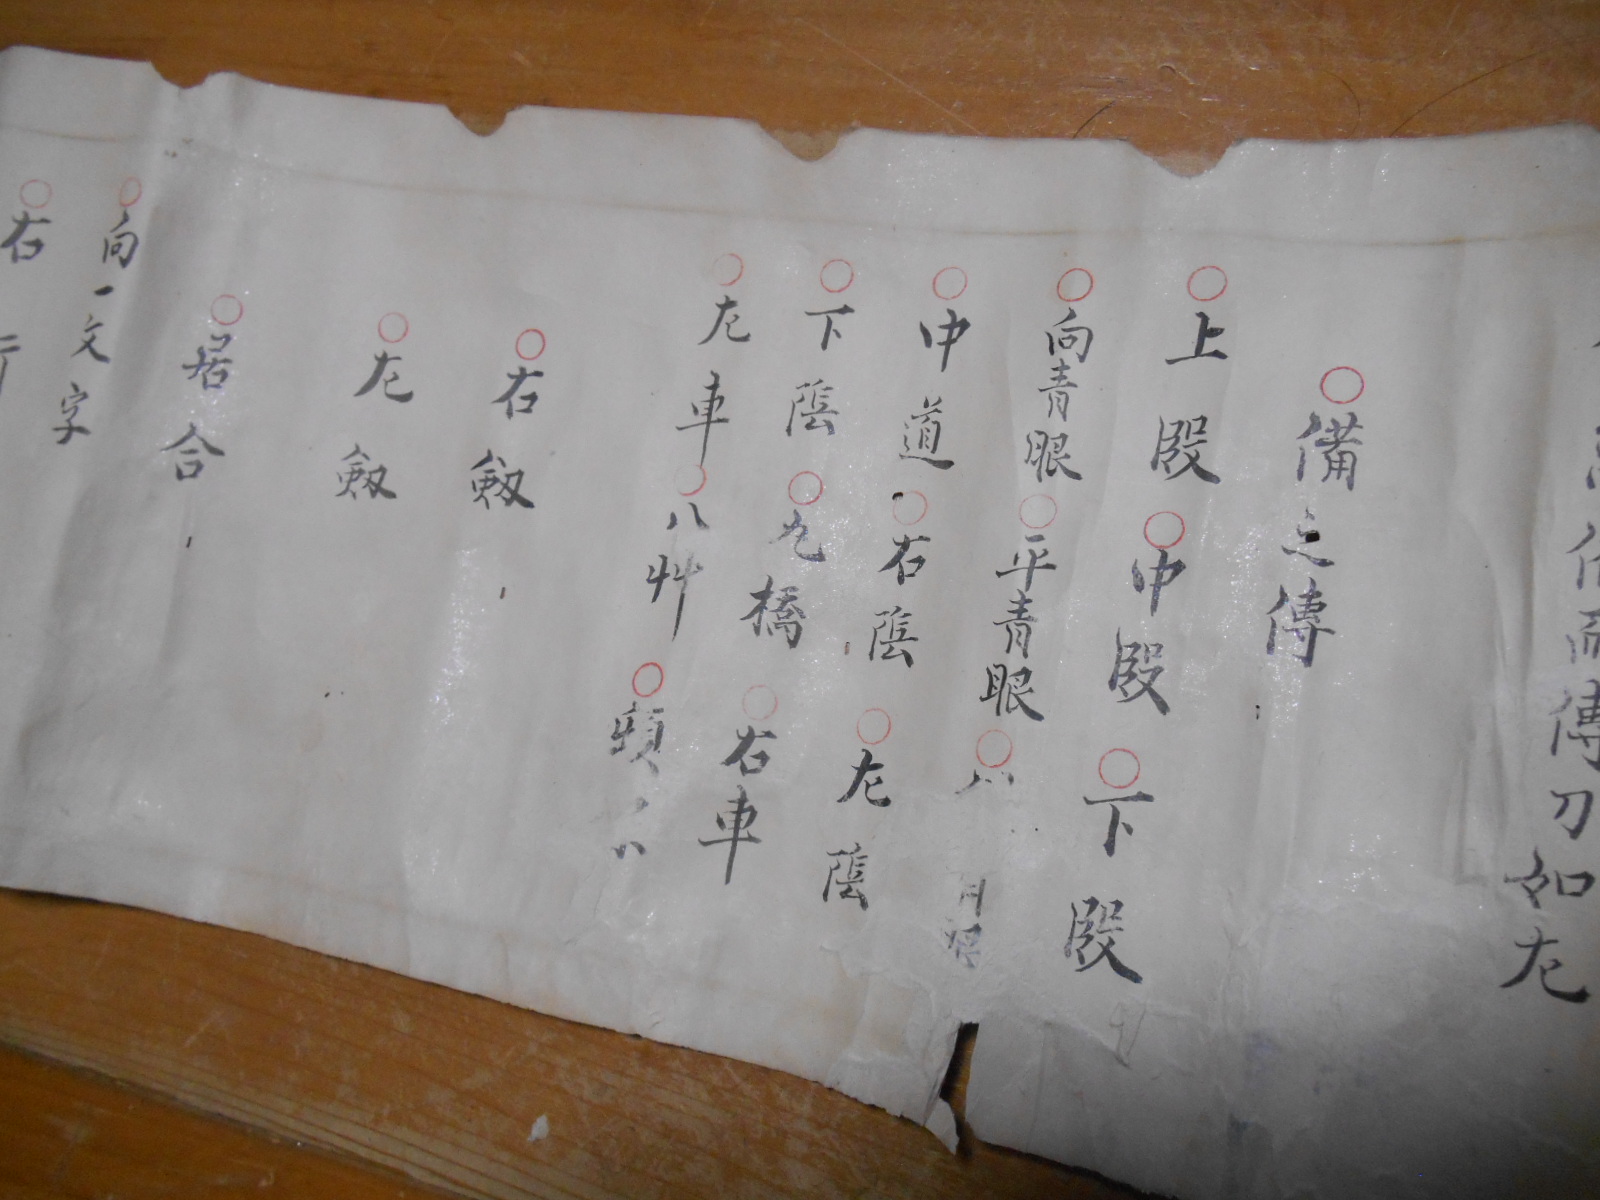 伯而傳刀如左
○備之傳
○上段○中段○下段
○向青眼○平青眼○青眼
○中道○右陰○左陰
○下陰○丸橋○右車
○左車○八艸○
○右劔
○左劔
○居合
○向一文字
○右